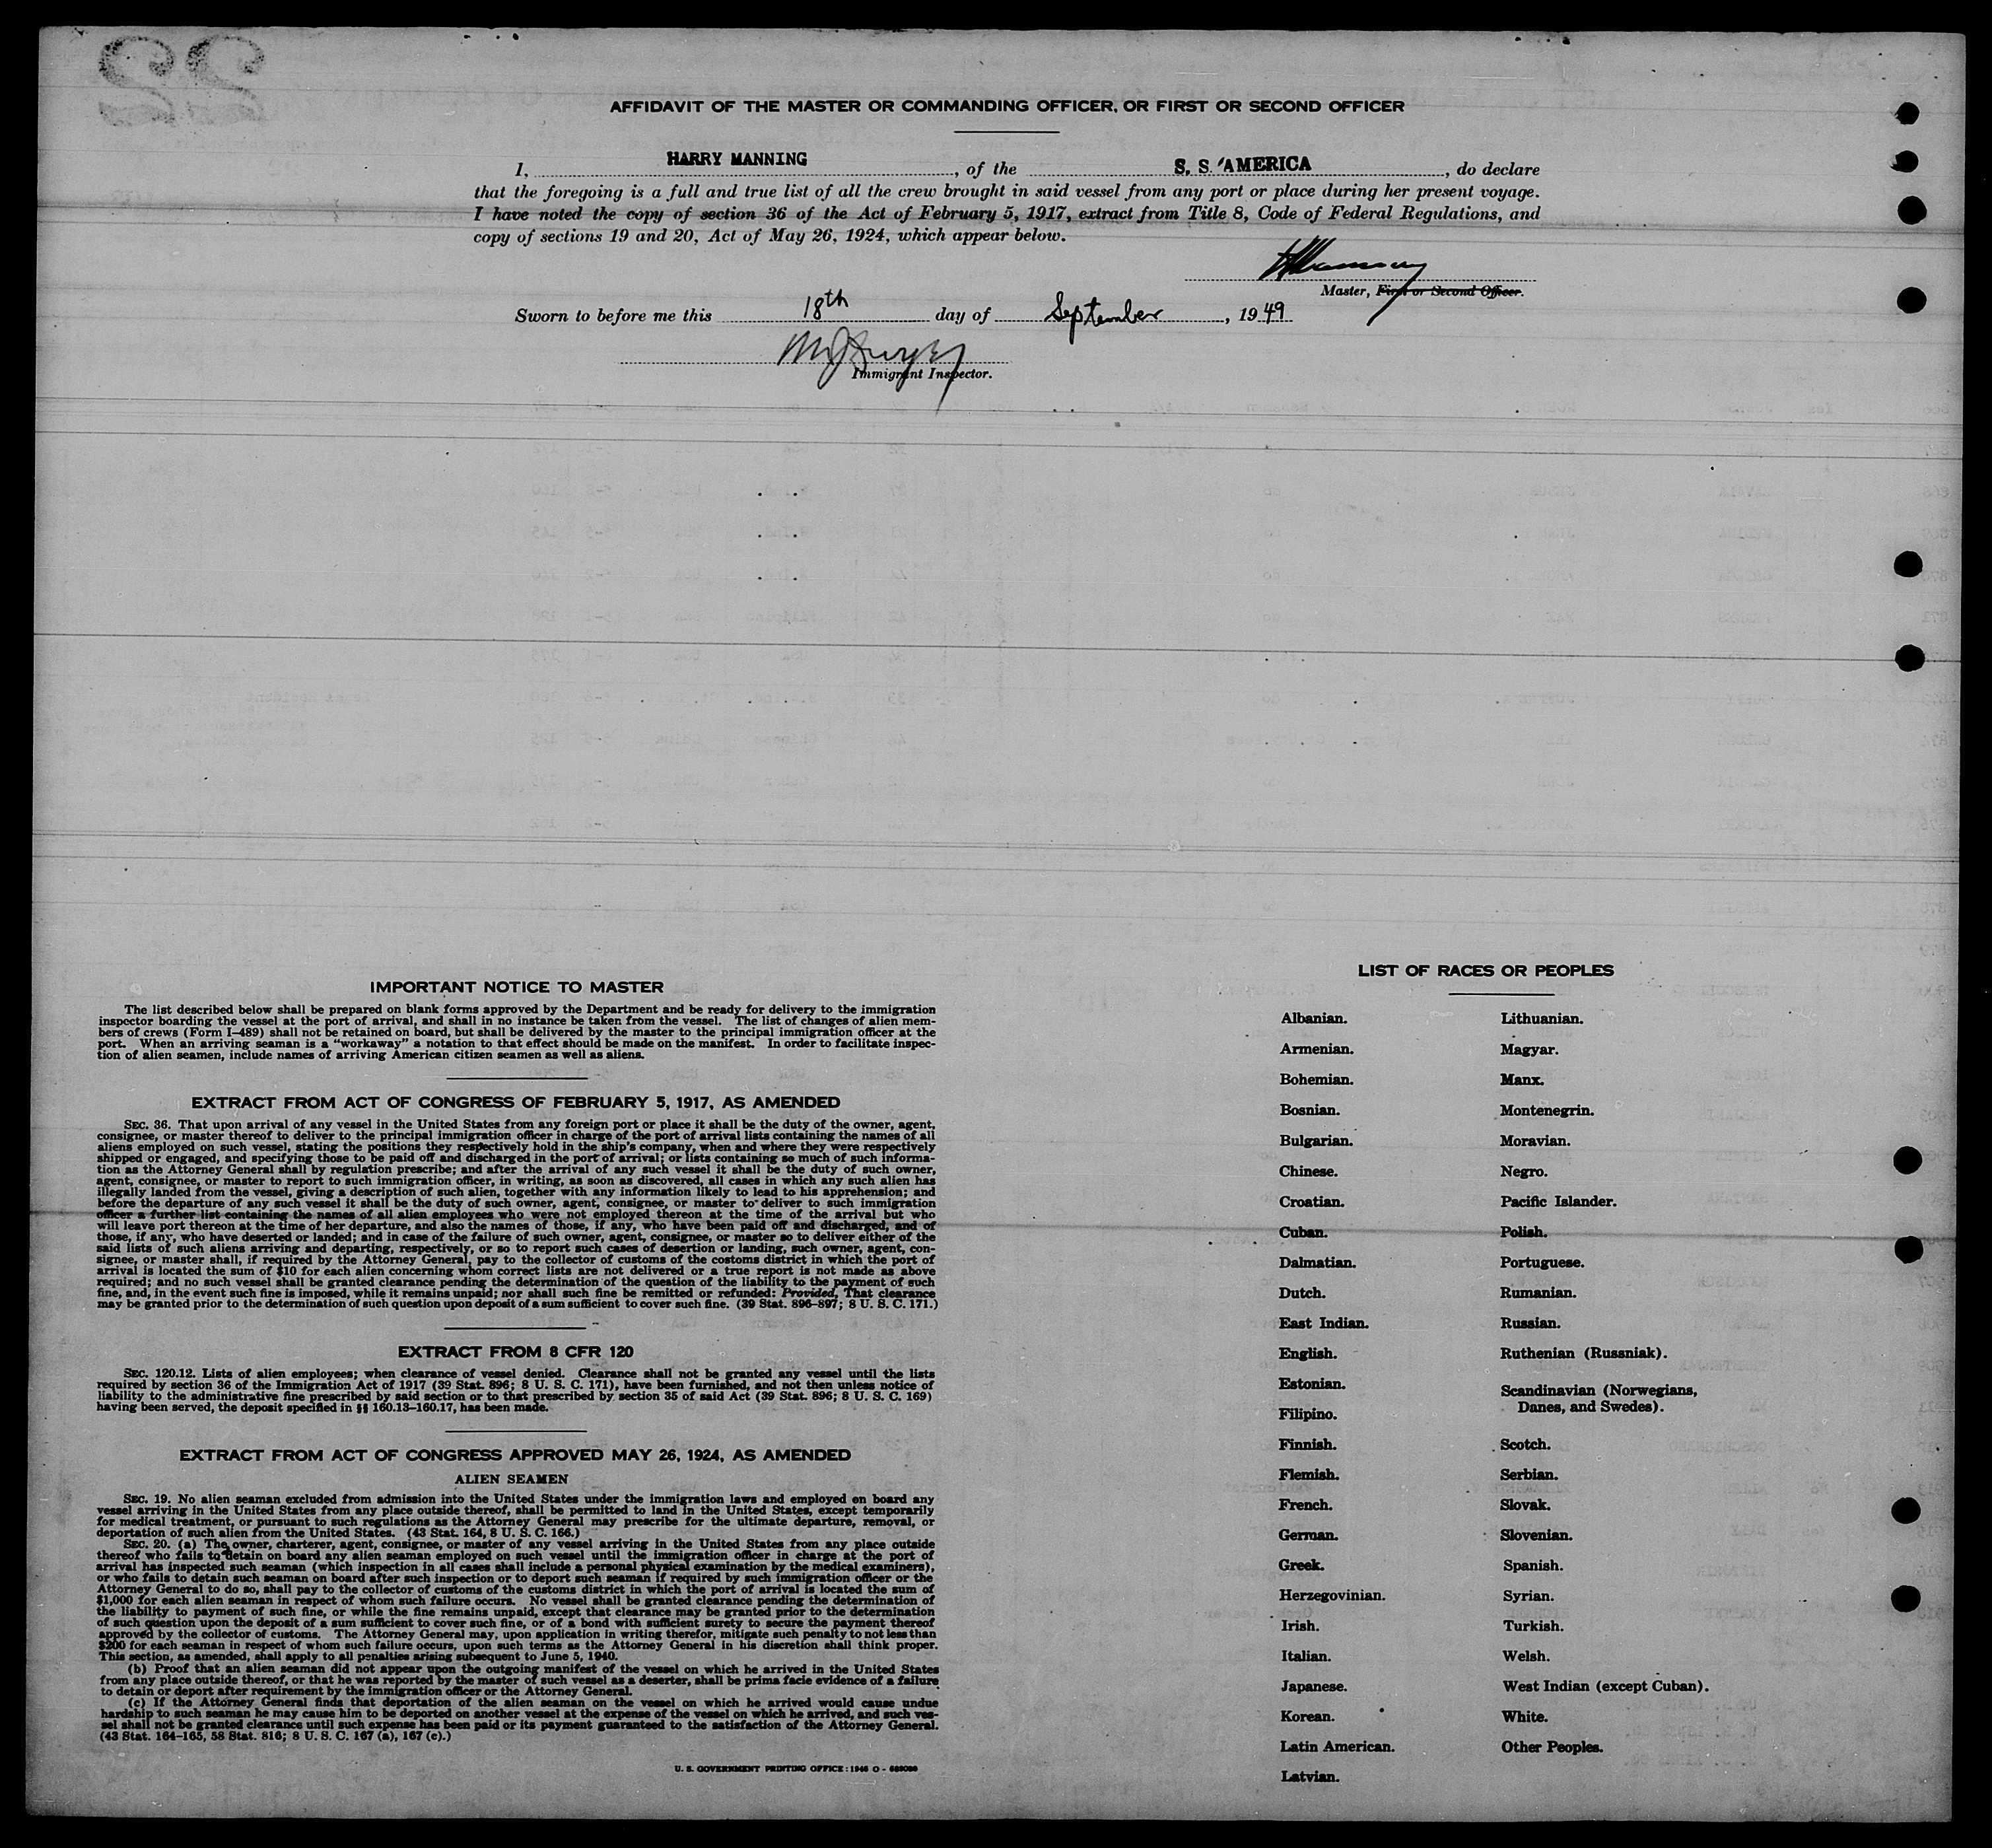 AFFIDAVIT OF THE MASTER OR COMMANDING OFFICER, OR FIRST OR SECOND OFFICER
I, HARRY MANNING, of the S. S. AMERICA, do declare
that the foregoing is a full and true list of all the crew brought in said vessel from any port or place during her present voyage.
I have noted the copy of section 36 of the Act of February 5, 1917, extract from Title 8, Code of Federal Regulations, and
copy of sections 19 and 20, Act of May 26, 1924, which appear below.
Master, First or Second Officer.
Sworn to before me this 18th day of September, 1949
Immigrant Inspector.
IMPORTANT NOTICE TO MASTER
The list described below shall be prepared on blank forms approved by the Department and be ready for delivery to the immigration
inspector boarding the vessel at the port of arrival, and shall in no instance be taken from the vessel. The list of changes of alien mem-
bers of crews (Form I-489) shall not be retained on board, but shall be delivered by the master to the principal immigration officer at the
port. When an arriving seaman is a "workaway" a notation to that effect should be made on the manifest. In order to facilitate inspec-
tion of alien seamen, include names of arriving American citizen seamen as well as aliens.
EXTRACT FROM ACT OF CONGRESS OF FEBRUARY 5, 1917, AS AMENDED
SEC. 36. That upon arrival of any vessel in the United States from any foreign port or place it shall be the duty of the owner, agent,
consignee, or master thereof to deliver to the principal immigration officer in charge of the port of arrival lists containing the names of all
aliens employed on such vessel, stating the positions they respectively hold in the ship's company, when and where they were respectively
shipped or engaged, and specifying those to be paid off and discharged in the port of arrival; or lists containing so much of such informa-
tion as the Attorney General shall by regulation prescribe; and after the arrival of any such vessel it shall be the duty of such owner,
agent, consignee, or master to report to such immigration officer, in writing, as soon as discovered, all cases in which any such alien has
illegally landed from the vessel, giving a description of such alien, together with any information likely to lead to his apprehension; and
before the departure of any such vessel it shall be the duty of such owner, agent, consignee, or master to deliver to such immigration
officer a further list containing the names of all alien employees who were not employed thereon at the time of the arrival but who
will leave port thereon at the time of her departure, and also the names of those, if any, who have been paid off and discharged, and of
those, if any, who have deserted or landed; and in case of the failure of such owner, agent, consignee, or master so to deliver either of the
said lists of such aliens arriving and departing, respectively, or so to report such cases of desertion or landing, such owner, agent, con-
signee, or master shall, if required by the Attorney General, pay to the collector of customs of the costoms district in which the port of
arrival is located the sum of $10 for each alien concerning whom correct lists are not delivered or a true report is not made as above
required; and no such vessel shall be granted clearance pending the determination of the question of the liability to the payment of such
fine, and, in the event such fine is imposed, while it remains unpaid; nor shall such fine be remitted or refunded: Provided, That clearance
may be granted prior to the determination of such question upon deposit of a sum sufficient to cover such fine. (39 Stat. 896-897; 8 U. S. C. 171.)
EXTRACT FROM 8 CFR 120
SEC. 120.12. Lists of alien employees; when clearance of vessel denied. Clearance shall not be granted any vessel until the lists
required by section 36 of the Immigration Act of 1917 (39 Stat. 896; 8 U. S. C. 171), have been furnished, and not then unless notice of
liability to the administrative fine prescribed by said section or to that prescribed by section 35 of said Act (39 Stat. 896; 8 U. S. C. 169)
having been served, the deposit specified in §§ 160.13-160.17, has been made.
EXTRACT FROM ACT OF CONGRESS APPROVED MAY 26, 1924, AS AMENDED
ALIEN SEAMEN
SEC. 19. No alien seaman excluded from admission into the United States under the immigration laws and employed on board any
vessel arriving in the United States from any place outside thereof, shall be permitted to land in the United States, except temporarily
for medical treatment, or pursuant to such regulations as the Attorney General may prescribe for the ultimate departure, removal, or
deportation of such alien from the United States. (43 Stat. 164, 8 U. S. C. 166.)
SEC. 20. (a) The owner, charterer, agent, consignee, or master of any vessel arriving in the United States from any place outside
thereof who fails to detain on board any alien seaman employed on such vessel until the immigration officer in charge at the port of
arrival has inspected such seaman (which inspection in all cases shall include a personal physical examination by the medical examiners),
or who fails to detain such seaman on board after such inspection or to deport such seaman if required by such immigration officer or the
Attorney General to do so, shall pay to the collector of customs of the customs district in which the port of arrival is located the sum of
$1,000 for each alien seaman in respect of whom such failure occurs. No vessel shall be granted clearance pending the determination of
the liability to payment of such fine, or while the fine remains unpaid, except that clearance may be granted prior to the determination
of such question upon the deposit of a sum sufficient to cover such fine, or of a bond with sufficient surety to secure the payment thereof
approved by the collector of customs. The Attorney General may, upon application in writing therefor, mitigate such penalty to not less than
$200 for each seaman in respect of whom such failure occurs, upon such terms as the Attorney General in his discretion shall think proper.
This section, as amended, shall apply to all penalties arising subsequent to June 5, 1940.
(b) Proof that an alien seaman did not appear upon the outgoing manifest of the vessel on which he arrived in the United States
from any place outside thereof, or that he was reported by the master of such vessel as a deserter, shall be prima facie evidence of a failure
to detain or deport after requirement by the immigration officer or the Attorney General.
(c) If the Attorney General finds that deportation of the alien seaman on the vessel on which he arrived would cause undue
hardship to such seaman he may cause him to be deported on another vessel at the expense of the vessel on which he arrived, and such ves-
sel shall not be granted clearance until such expense has been paid or its payment guaranteed to the satisfaction of the Attorney General.
(43 Stat. 164-165, 58 Stat. 816; 8 U. S. C. 167 (a), 167 (c).)
U. S. GOVERNMENT PRINTING OFFICE: 1946 O -
LIST OF RACES OR PEOPLES
Albanian.
Armenian.
Bohemian.
Bosnian.
Bulgarian.
Chinese.
Croatian.
Cuban.
Dalmatian.
Dutch.
East Indian.
English.
Estonian.
Filipino.
Finnish.
Flemish.
French.
German.
Greek.
Herzegovinian.
Irish.
Italian.
Japanese.
Korean.
Latin American.
Latvian.
Lithuanian.
Magyar.
Manx.
Montenegrin.
Moravian.
Negro.
Pacific Islander.
Polish.
Portuguese.
Rumanian.
Russian.
Ruthenian (Russniak).
Scandinavian (Norwegians,
Danes, and Swedes).
Scotch.
Serbian.
Slovak.
Slovenian.
Spanish.
Syrian.
Turkish.
Welsh.
West Indian (except Cuban).
White.
Other Peoples.